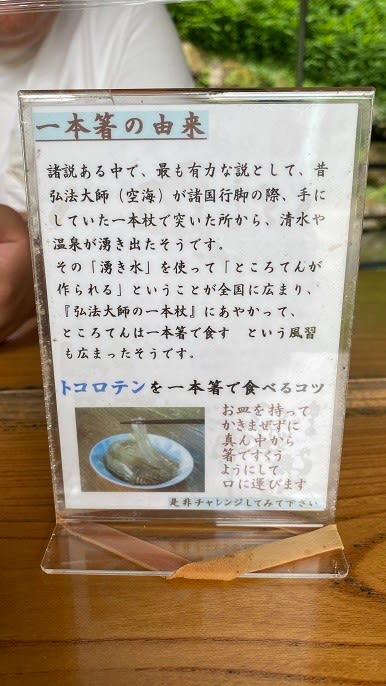 一本箸の由来
諸説ある中で、最も有力な説として、昔
弘法大師（空海）が諸国行脚の際、手に
していた一本杖で突いた所から、清水や
温泉が湧き出たそうです。
その「湧き水」を使って「ところてんが
作られる」ということが全国に広まり、
『弘法大師の一本杖』にあやかって、
ところてんは一本箸で食す　という風習
も広まったそうです。
トコロテンを一本箸で食べるコツ
お皿を持って
かきまぜずに
真ん中から
箸ですくう
ようにして
口に運びます
是非チャレンジしてみて下さい